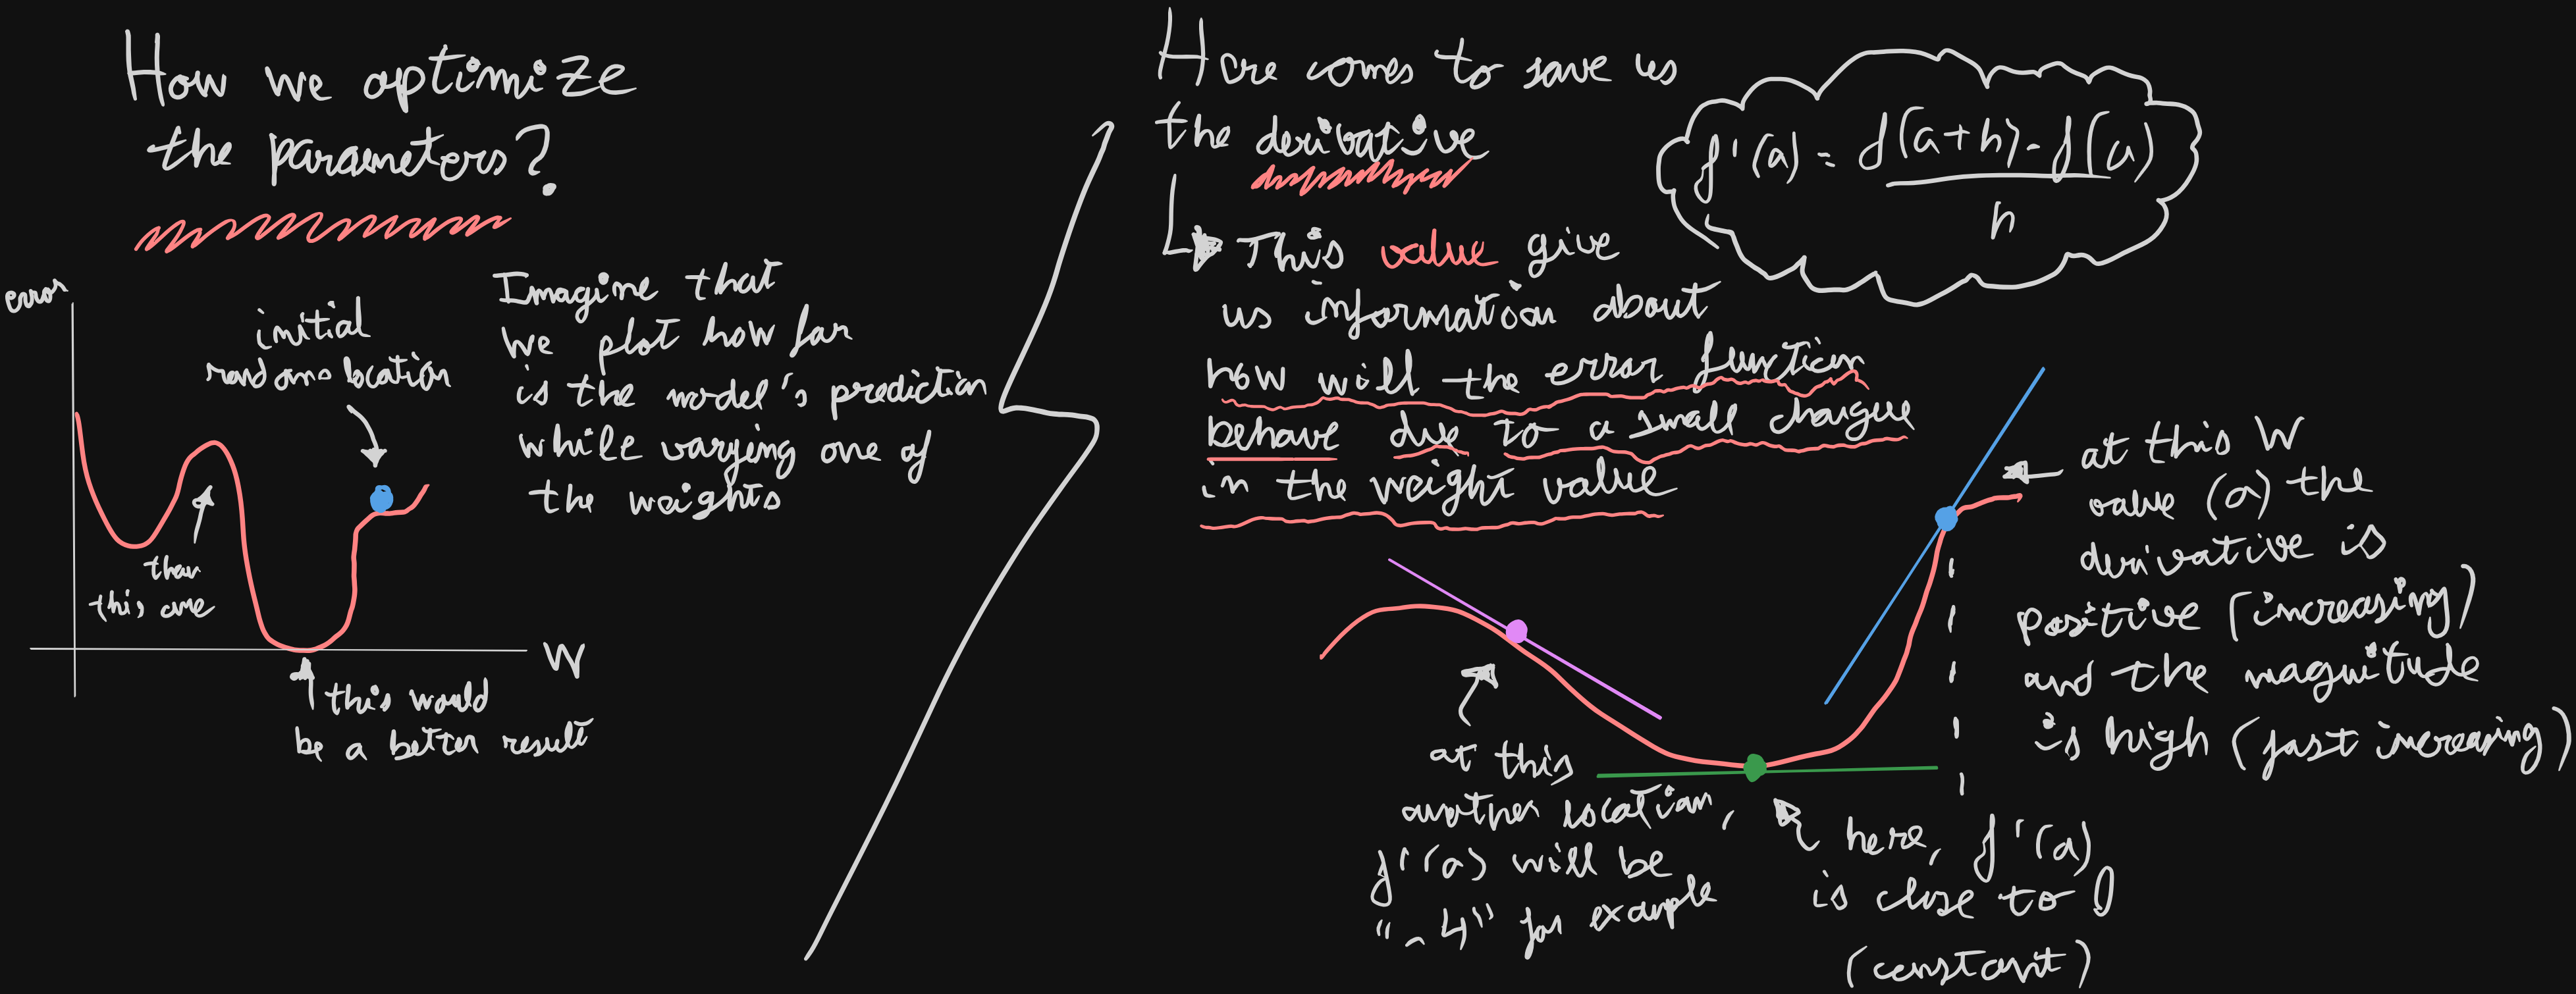 How we optimize
the parameters?
error
initial
random location
than
this one
W
this would
be a better result
Imagine that
we plot how far
is the model's prediction
while varying one of
the weights
Here comes to save us
the derivative
f'(a) = f(a+h)-f(a)
h
This value give
us information about
how will the error function
behave due to a small change
in the weight value
at this W
value (a) the
derivative is
positive (increasing)
and the magnitude
is high (fast increasing)
at this
another location,
f'(a) will be
"-4" for example
here, f'(a)
is close to 0
(constant)